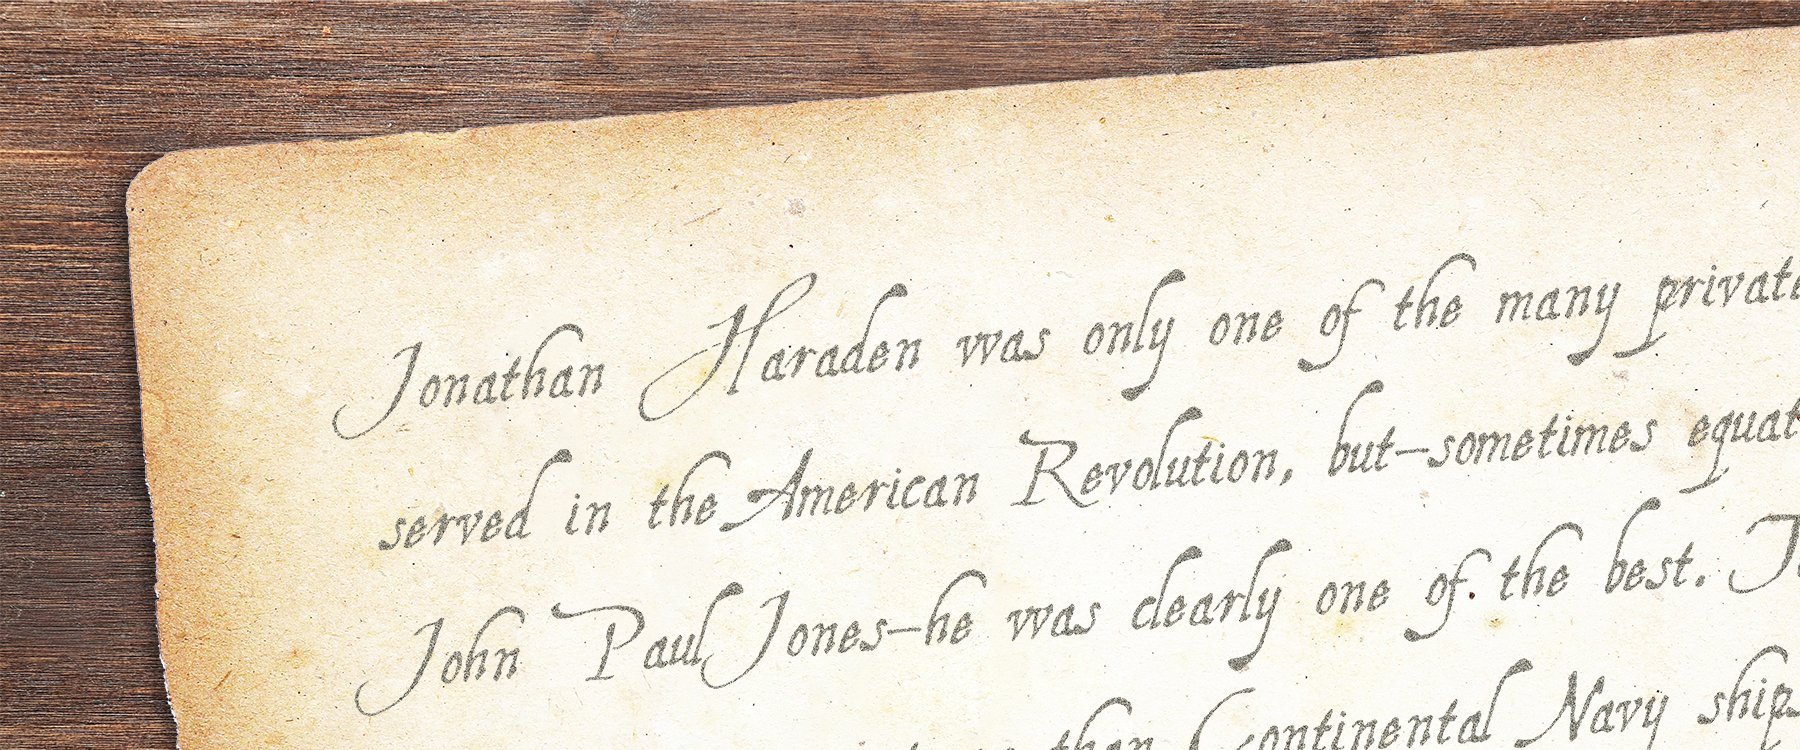 Jonathan Haraden was only one of the many
served in the American Revolution, but—sometimes
John Paul Jones—he was clearly one of the best.
than Continental Navy